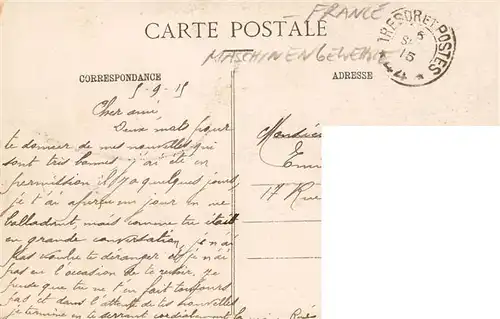 CARTE POSTALE
- FRANCE
MASCHINENGEWEHRE
TRESOR ET POSTES
5
15
* 44 *
CORRESPONDANCE
ADRESSE
5-9-15
Cher ami,
Deux mots pour
te donner de mes nouvelles qui
sont très bonnes j'ai été en
permission il y a quelques jours,
je t'ai aperçu un jour en me
balladant, mais comme tu étais
en grande conversation, je n'ai
pas voulu te déranger et je n'ai
pas eu l'occasion de te revoir, je
pense que tu ne t'en fait toujours
pas et dans l'attente de tes nouvelles
je termine en te serrant cordialement la main
Monsieur
17 Rue